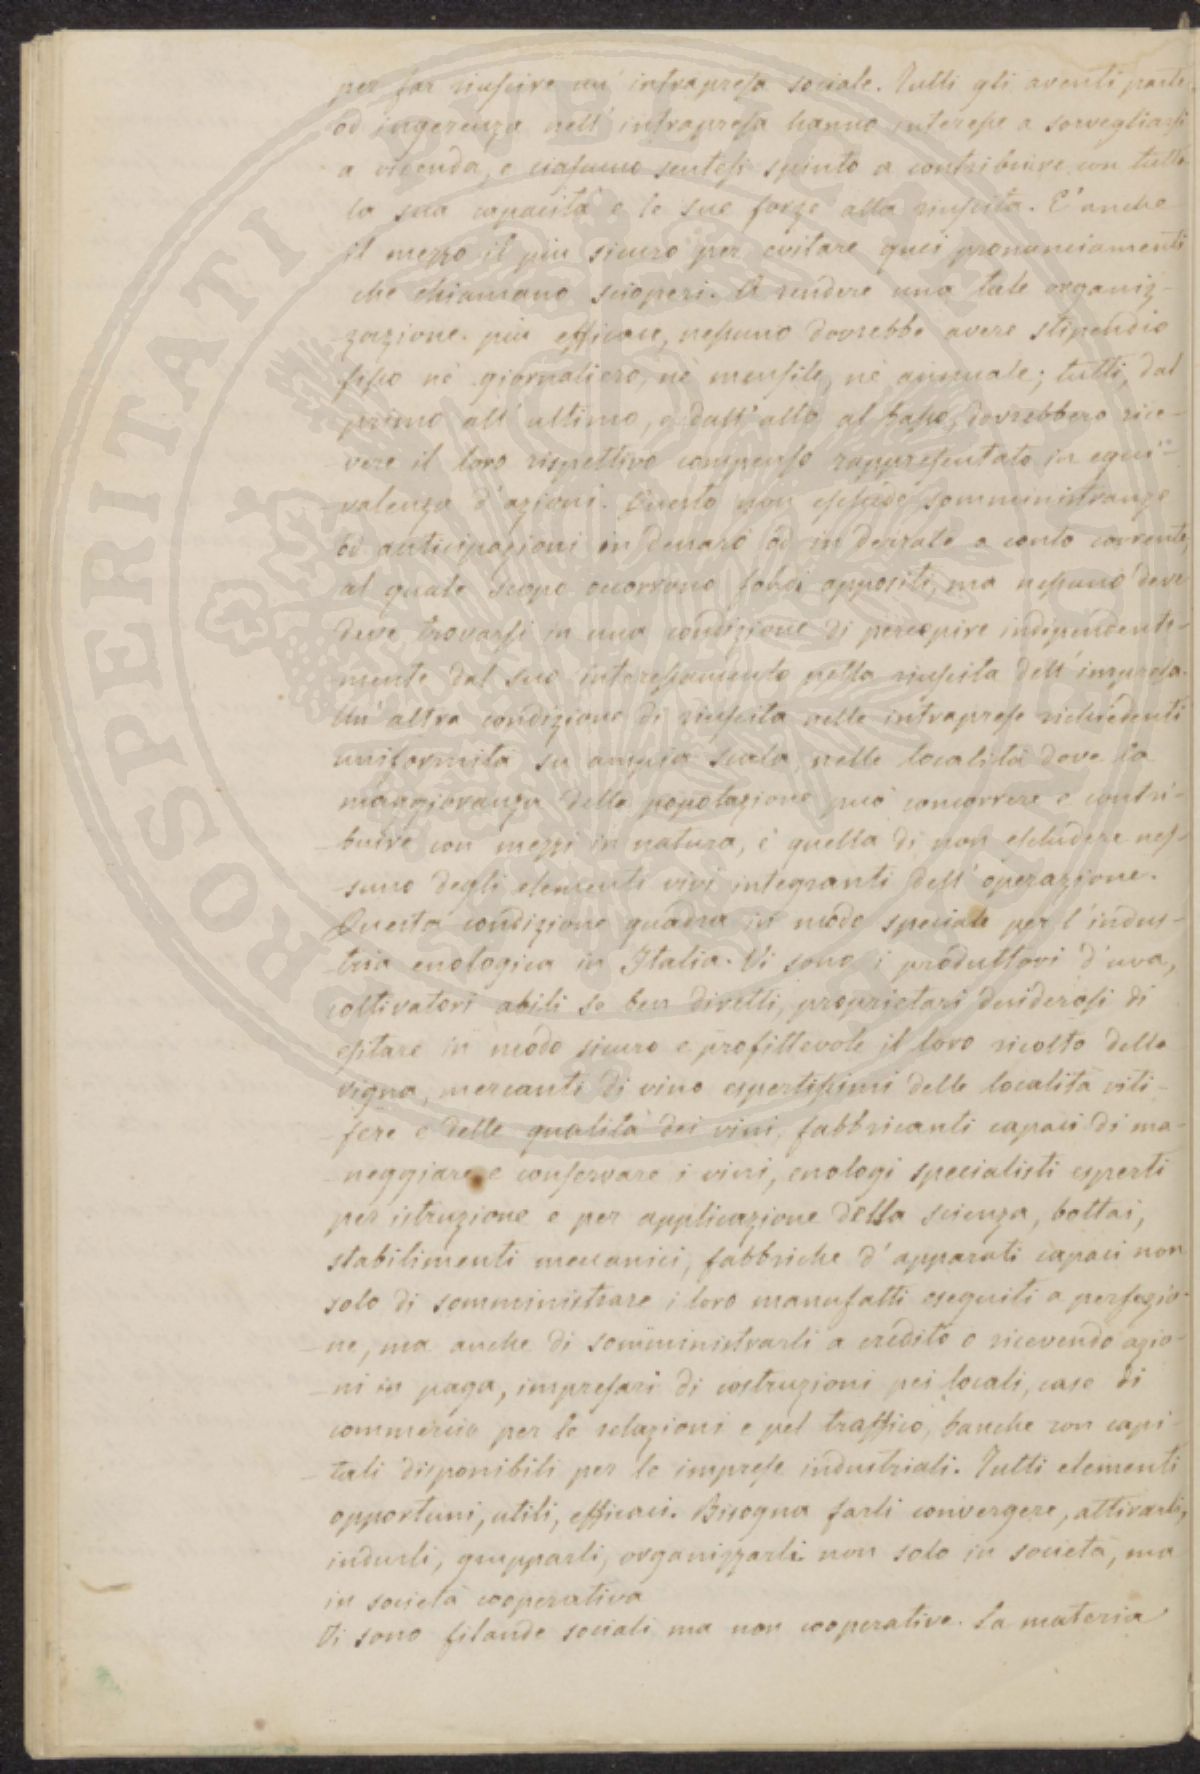 per far riuscire un' intrapresa sociale. Tutti gli aventi parte
od ingerenza nell' intrapresa hanno interesse a sorvegliarsi
a vicenda, e ciascuno sentesi spinto a contribuire con tutta
la sua capacità e le sue forze alla riuscita. E' anche
il mezzo il più sicuro per evitare quei pronunciamenti
che chiamano scioperi. A rendere una tale organiz-
zazione più efficace, nessuno dovrebbe avere stipendio
fisso nè giornaliero, nè mensile, nè annuale; tutti, dal
primo all' ultimo, e dall' alto al basso, dovrebbero rice-
vere il loro rispettivo compenso rappresentato in equi-
valenza d' azioni. Questo non esclude somministranze
od anticipazioni in denaro od in derrate a conto corrente,
al quale scopo occorrono fondi appositi, ma nessuno deve
deve trovarsi in una condizione di percepire indipendente-
mente dal suo interessamento nella riuscita dell' impresa.
Un' altra condizione di riuscita nelle intraprese richiedenti
uniformità su ampia scala, nelle località dove la
maggioranza della popolazione può concorrere e contri-
buire con mezzi in natura, è quella di non escludere nes-
suno degli elementi vivi integranti dell' operazione.
Questa condizione quadra in modo speciale per l' indus-
tria enologica in Italia. Vi sono i produttori d' uva,
coltivatori abili se ben diretti, proprietari desiderosi di
esitare in modo sicuro e profittevole il loro ricolto della
vigna, mercanti di vino espertissimi delle località viti-
fere e delle qualità dei vini, fabbricanti capaci di ma-
neggiare e conservare i vini, enologi specialisti esperti
per istruzione e per applicazione della scienza, bottai,
stabilimenti meccanici, fabbriche d' apparati capaci non
solo di somministrare i loro manufatti eseguiti a perfezio-
ne, ma anche di somministrarli a credito o ricevendo azio-
ni in paga, impresari di costruzioni pei locali, case di
commercio per le relazioni e pel traffico, banche con capi-
tali disponibili per le imprese industriali. Tutti elementi
opportuni, utili, efficaci. Bisogna farli convergere, attirarli,
indurli, grupparli, organizzarli non solo in società, ma
in società cooperativa
Vi sono filande sociali ma non cooperative. La materia
PROSPERITATI PVBLICAE